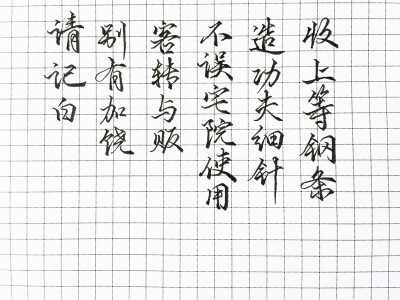 收上等钢条
造功夫细针
不误宅院使用
客转与贩
别有加饶
请记白